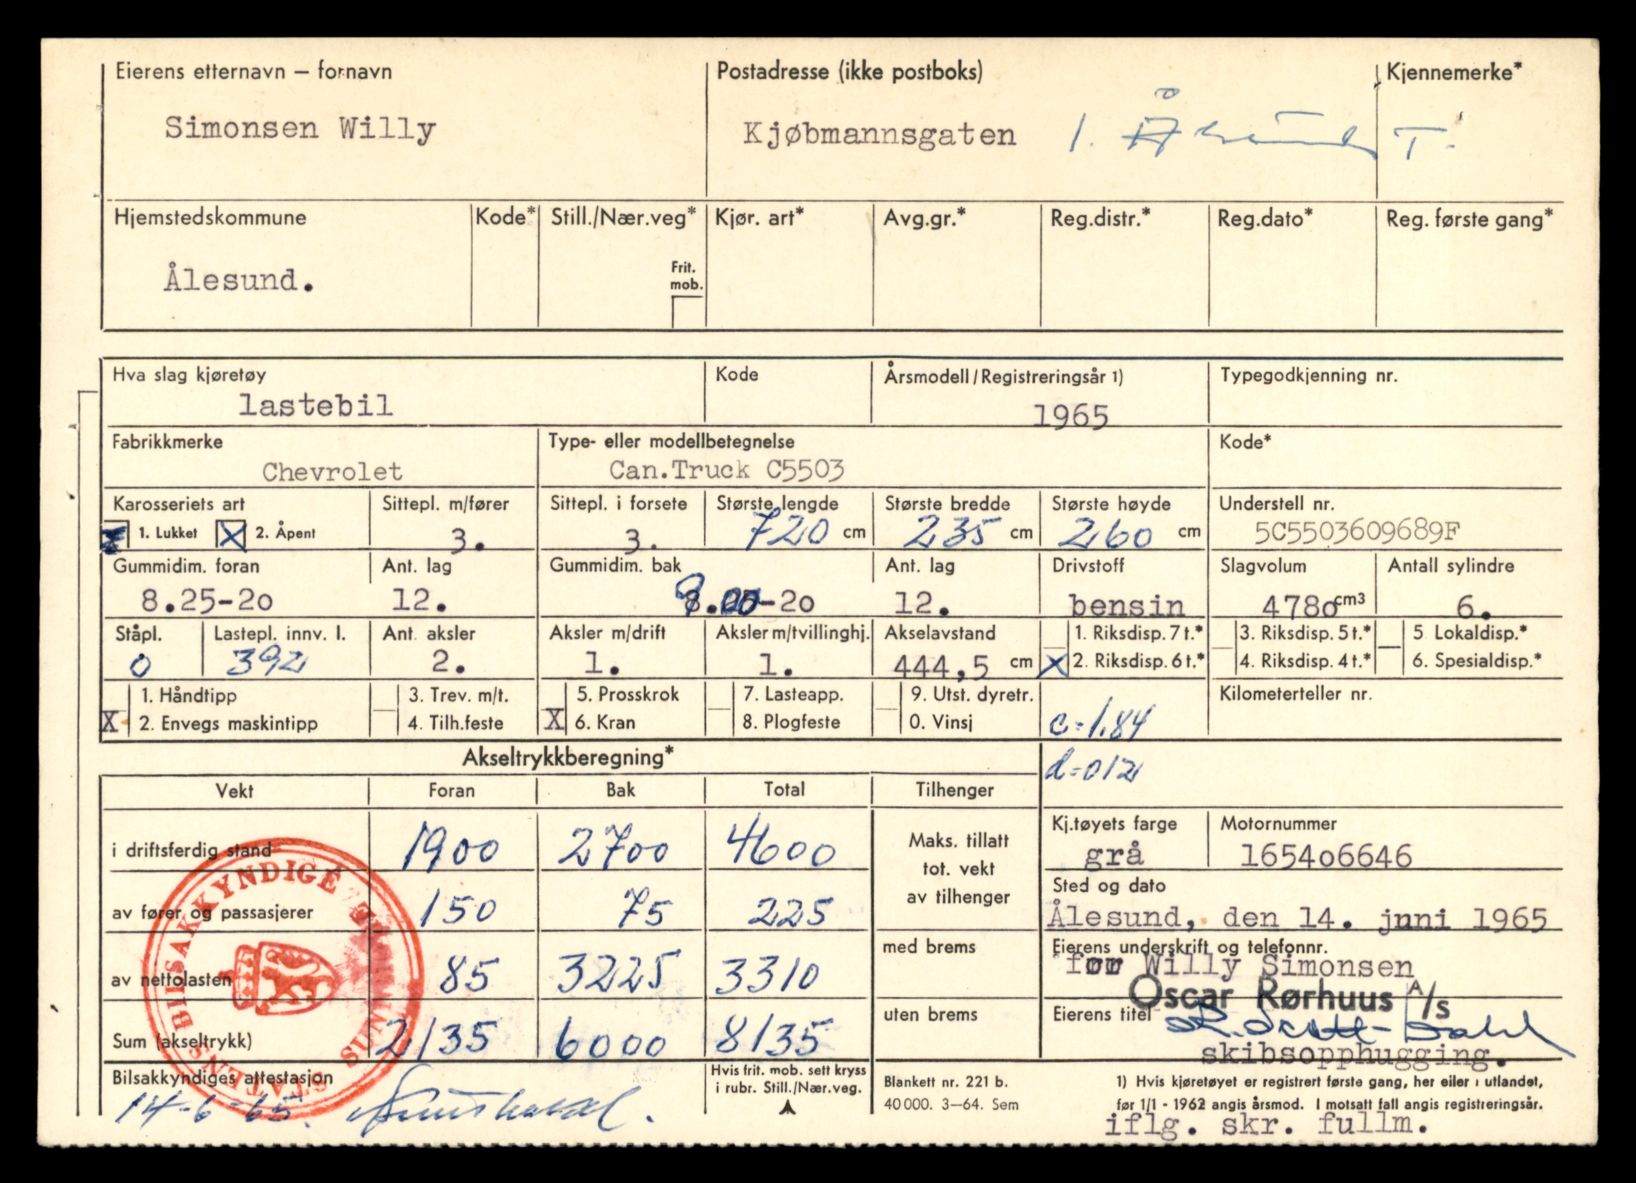 Eierens etternavn — fornavn Postadresse (ikke postboks) Kjennemerke*
Simonsen Willy Kjøbmannsgaten 1. Ålesund T.
Hjemstedskommune Kode* Still./Nær.veg* Kjør. art* Avg.gr.* Reg.distr.* Reg.dato* Reg. første gang*
Ålesund. Frit. mob.
Hva slag kjøretøy Kode Årsmodell/Registreringsår 1) Typegodkjenning nr.
lastebil 1965
Fabrikkmerke Type- eller modellbetegnelse Kode*
Chevrolet Can.Truck C5503
Karosseriets art Sittepl. m/fører Sittepl. i forsete Største lengde Største bredde Største høyde Understell nr.
1. Lukket X 2. Åpent 3. 3. 720 cm 235 cm 260 cm 5C5503609689F
Gummidim. foran Ant. lag Gummidim. bak Ant. lag Drivstoff Slagvolum Antall sylindre
8.25-2o 12. 9.00-2o 12. bensin 478o cm3 6.
Ståpl. Lastepl. innv. l. Ant. aksler Aksler m/drift Aksler m/tvillinghj. Akselavstand 1. Riksdisp. 7 t.* 3. Riksdisp. 5 t.* 5 Lokaldisp.*
0 392 2. 1. 1. 444,5 cm X 2. Riksdisp. 6 t.* 4. Riksdisp. 4 t.* 6. Spesialdisp.*
1. Håndtipp 3. Trev. m/t. 5. Prosskrok 7. Lasteapp. 9. Utst. dyretr. Kilometerteller nr.
X 2. Envegs maskintipp 4. Tilh.feste X 6. Kran 8. Plogfeste 0. Vinsj c=1.84
Akseltrykkberegning* d=012
Vekt Foran Bak Total Tilhenger
i driftsferdig stand 1900 2700 4600 Maks. tillatt tot. vekt av tilhenger
Kj.tøyets farge Motornummer
grå 1654o6646
av fører og passasjerer 150 75 225
Sted og dato
Ålesund, den 14. juni 1965
av nettolasten 85 3225 3310 med brems
Eierens underskrift og telefonnr.
for Willy Simonsen
Oscar Rørhuus A/S
Sum (akseltrykk) 2135 6000 8135 uten brems Eierens titel
skibsopphugging.
BILSAKKYNDIGE
STATENS
Bilsakkyndiges attestasjon
14-6-65.
Hvis frit. mob. sett kryss
i rubr. Still./Nær.veg.
Blankett nr. 221 b.
40 000. 3—64. Sem
1) Hvis kjøretøyet er registrert første gang, her eller i utlandet,
før 1/1 - 1962 angis årsmod. I motsatt fall angis registreringsår.
iflg. skr. fullm.